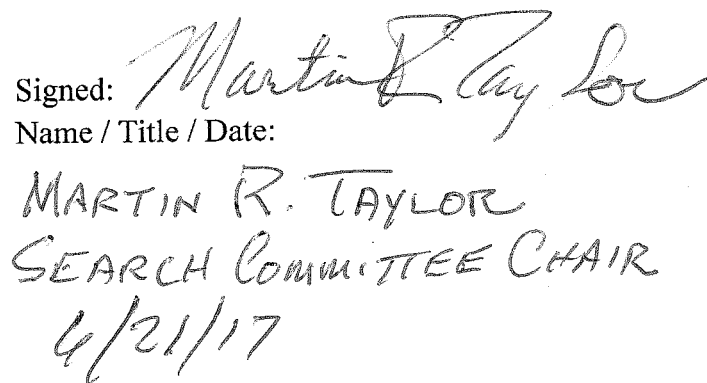 Signed: Martin R Taylor
Name / Title / Date:
MARTIN R. TAYLOR
SEARCH COMMITTEE CHAIR
6/21/17